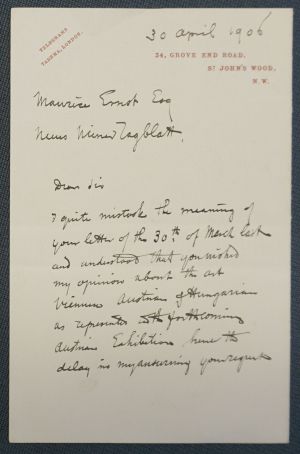 TELEGRAMS
TADEMA, LONDON.
30 April 1906
34, GROVE END ROAD,
ST JOHN'S WOOD,
N.W.
Maurice Ernst Esq
Neues Wiener Tagblatt.
Dear Sir
I quite mistook the meaning of
your letter of the 30th of March last
and understood that you wished
my opinion about the art
Viennese Austrian & Hungarian
as represented forthcoming
Austrian Exhibition hence the
delay in my answering your request